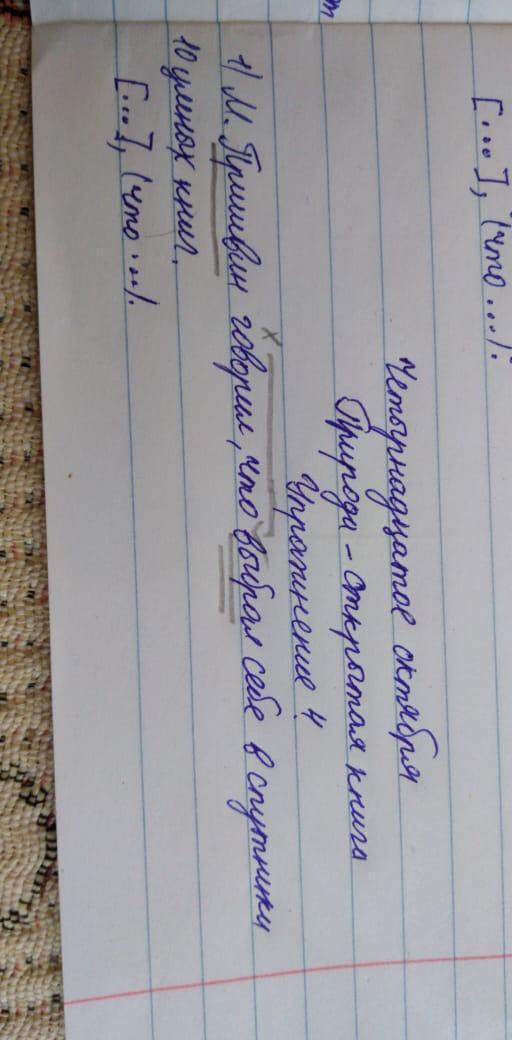 [...], (что ...).
Четырнадцатое октября
Природа - открытая книга
Упражнение 4
1) М. Пришвин говорил, что выбрал себе в спутники
10 умных книг.
[...], (что ...).